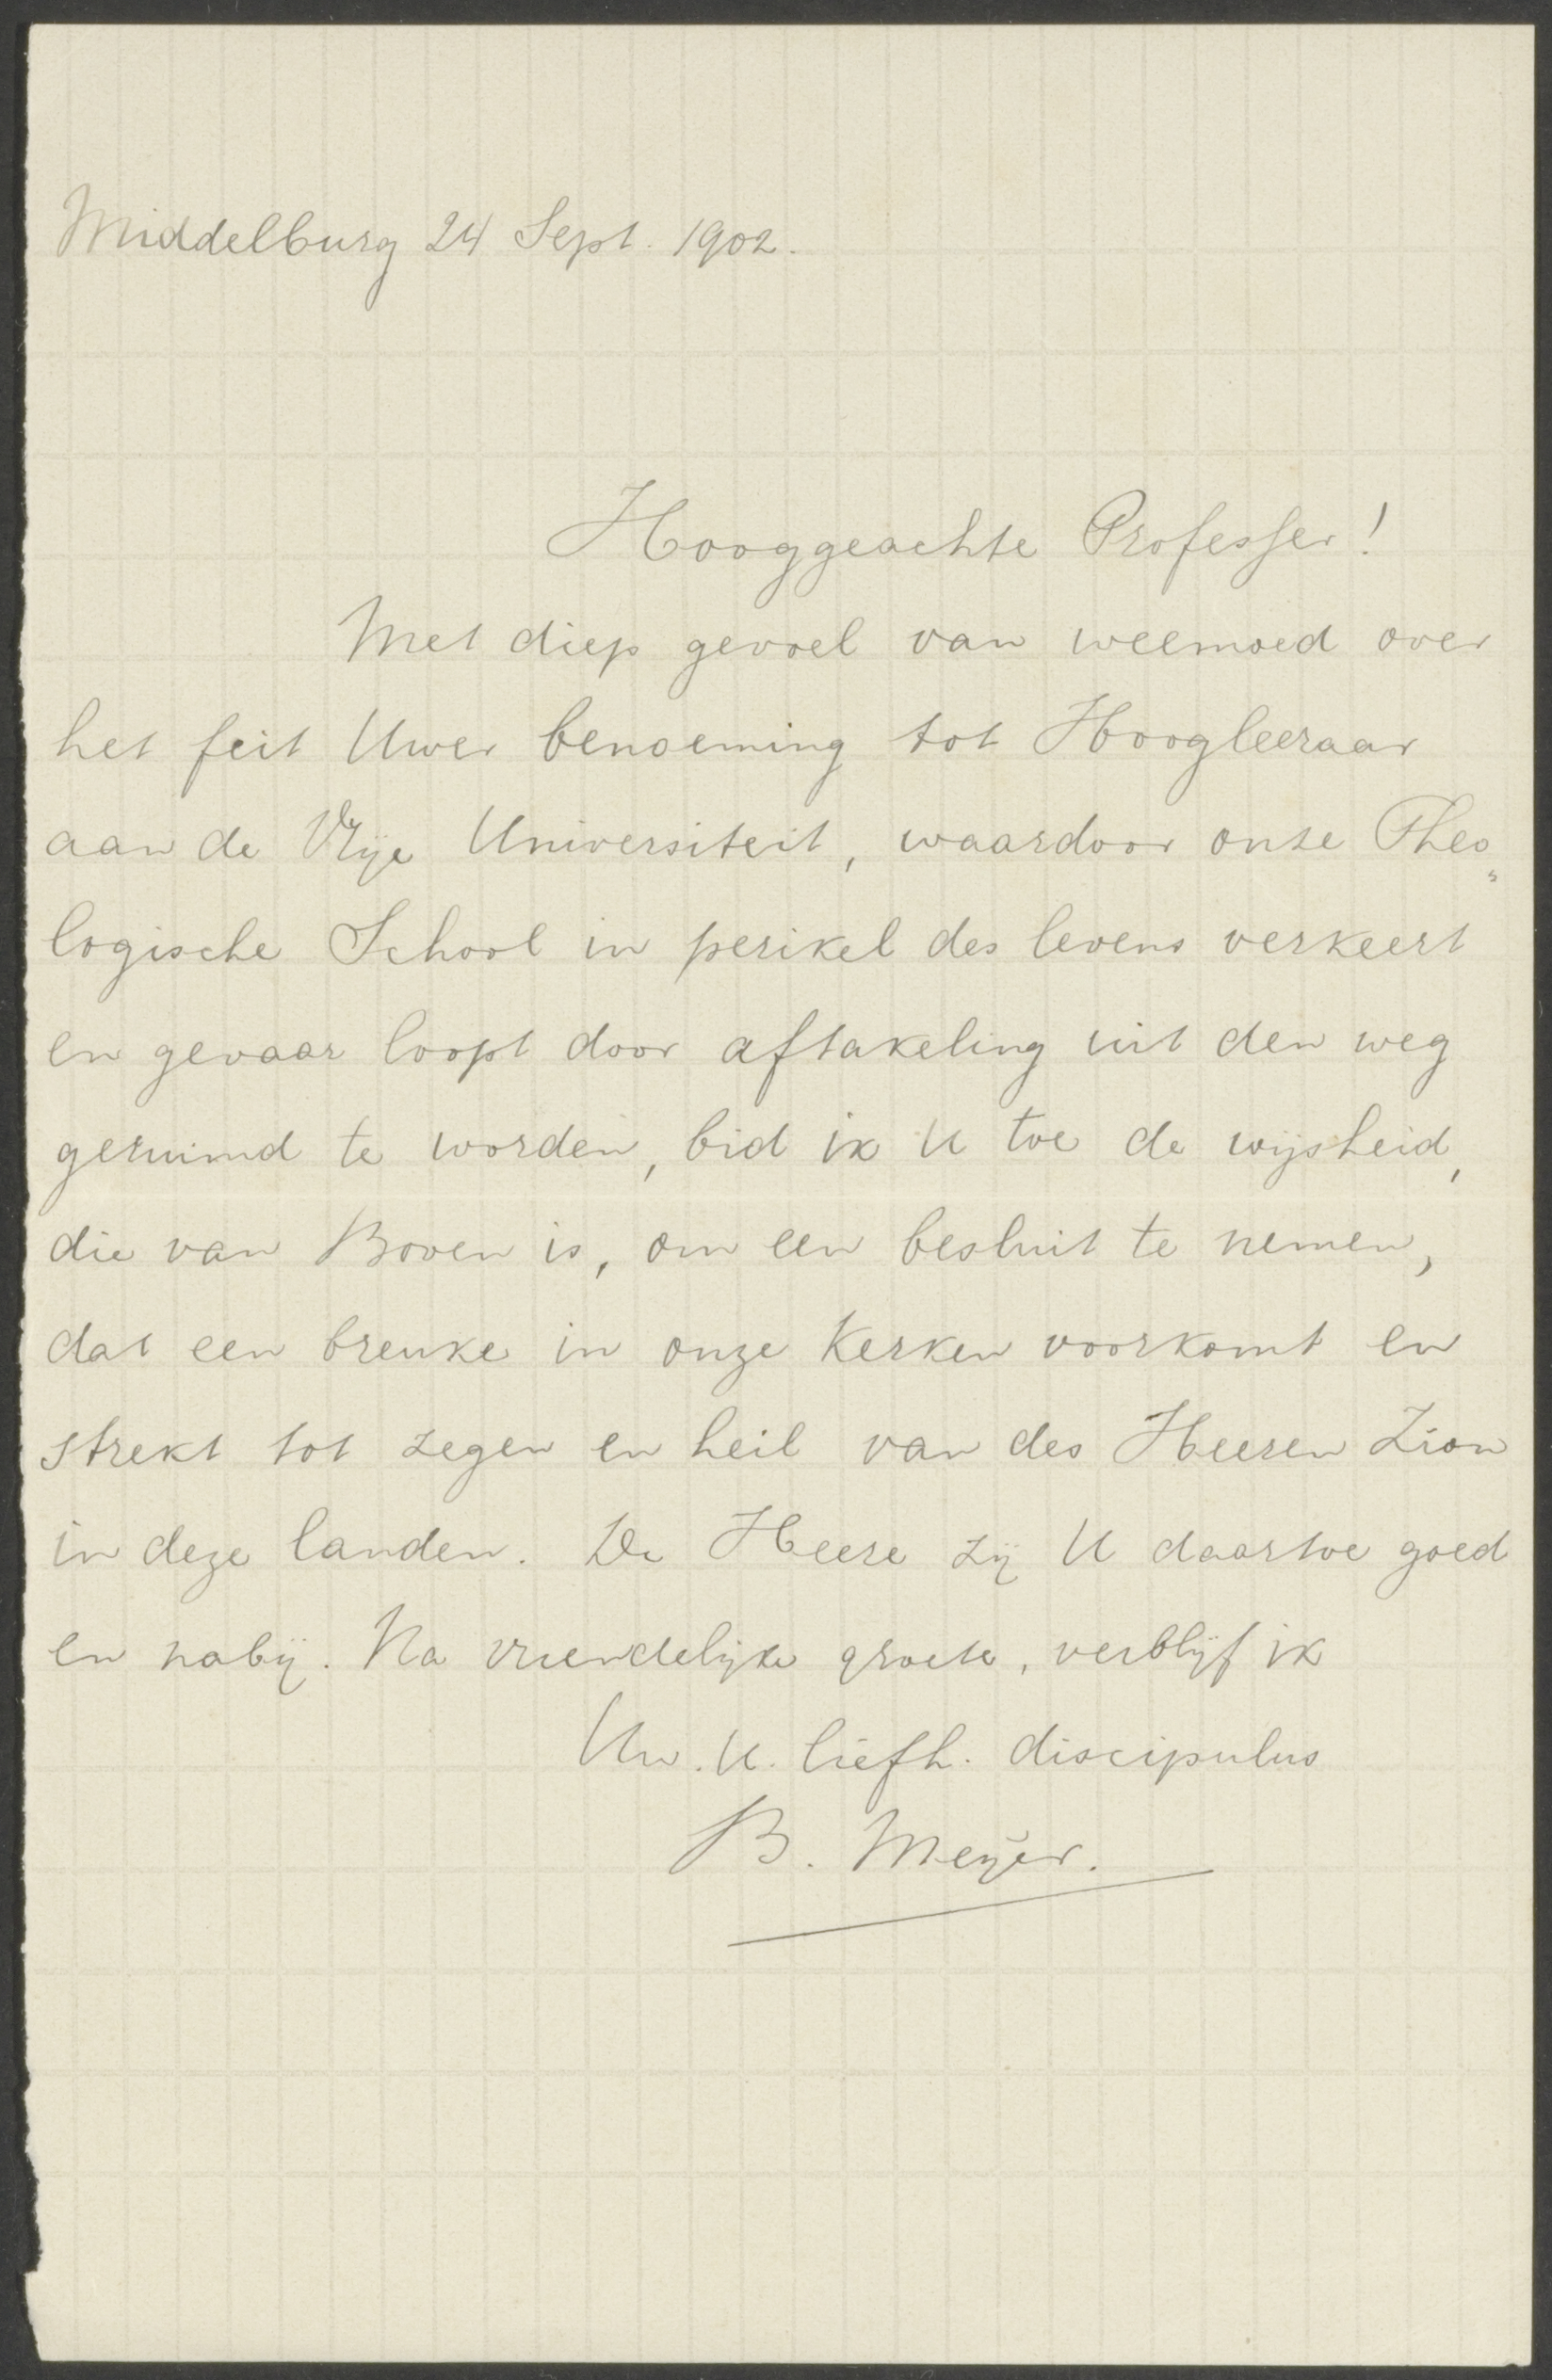 Middelburg 24 Sept. 1902.
Hooggeachte Professer!
Met diep gevoel van weemoed over
het feit Uwer benoeming tot Hoogleeraar
aan de Vrije Universiteit, waardoor onze Theo„
logische School in perikel des levens verkeert
en gevaar loopt door aftakeling uit den weg
geruimd te worden, bid ik U toe de wijsheid,
die van Boven is, om een besluit te nemen,
dat een breuke in onze Kerken voorkomt en
strekt tot zegen en heil van des Heeren Zion
in deze landen. De Heere zij U daartoe goed
en nabij. Na vriendelijke groete, verblijf ik
Uw. U. liefh. discipulus
B. Meijer.